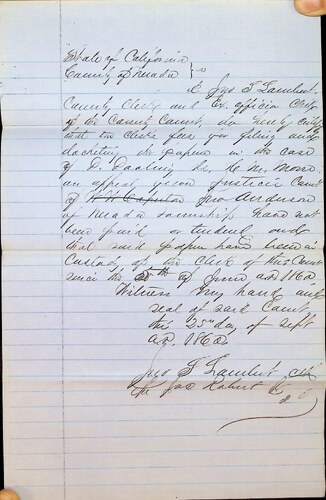 State of California
County of Nevada } ss
I Jno T Lambert
County Clerk and Ex officio Clerk
of the County Court, do hereby certify
that the Clerks fees for filing and
docketing the papers in the case
of D. Darling vs. C. M. Moore
an appeal from Justices Court
of Jno Anderson
of Nevada Township have not
been paid or tendered and
that said papers have been in
Custody of the Clerk of this Court
since the 25th of June AD 1860
Witness my hand and
seal of said Court
this 25th day of Sept
AD. 1860
Jno T Lambert Clk
Robert